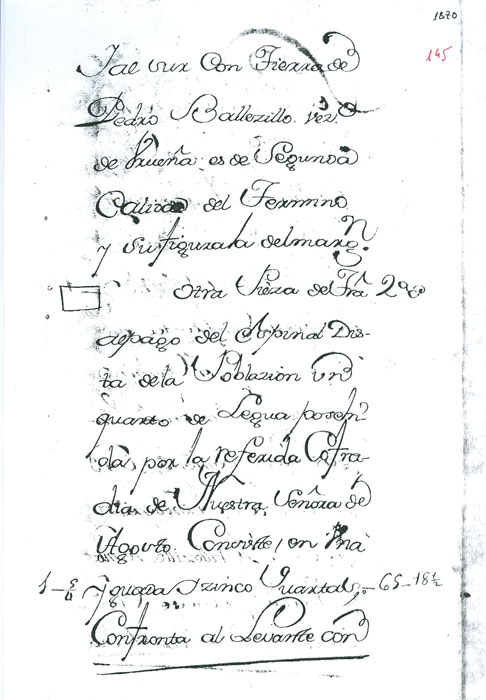 1870
145
Y al sur Con Tierra de
Pedro Ballezillo vez.o
de Prueña es de Segunda
Calidad del Termino
y su figura la del marg.n
otra Pieza de Tra 2a
al pago del Aspinal Dis-
ta de la Poblazion un
quarto de Legua poseh-
da, por la referida Cofra-
dia de Nuestra Señora de
Agosto Consiste, en
y zinco Quartals, 65-18½
Confronta al Levante con